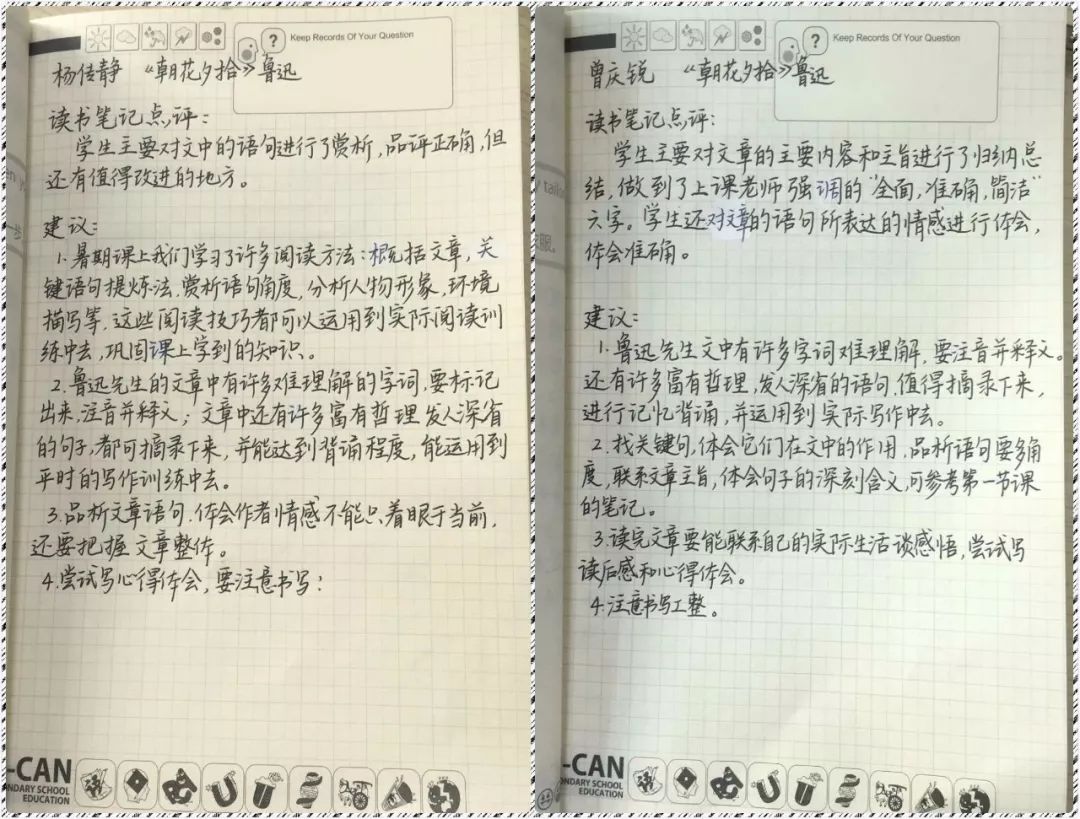 Keep Records Of Your Question
杨传静 《朝花夕拾》鲁迅
读书笔记点评:
学生主要对文中的语句进行了赏析,品评正确,但
还有值得改进的地方。
建议:
1.暑期课上我们学习了许多阅读方法:概括文章,关
键语句提炼法,赏析语句角度,分析人物形象,环境
描写等,这些阅读技巧都可以运用到实际阅读训
练中去,巩固课上学到的知识。
2.鲁迅先生的文章中有许多难理解的字词,要标记
出来,注音并释义;文章中还有许多富有哲理发人深省
的句子,都可摘录下来,并能达到背诵程度,能运用到
平时的写作训练中去。
3.品析文章语句,体会作者情感不能只着眼于当前,
还要把握文章整体。
4.尝试写心得体会,要注意书写!
-CAN
ONDARY SCHOOL
EDUCATION
Keep Records Of Your Question
曾庆锐 《朝花夕拾》鲁迅
读书笔记点评:
学生主要对文章的主要内容和主旨进行了归纳总
结,做到了上课老师强调的"全面,准确,简洁"
六字。学生还对文章的语句所表达的情感进行体会,
体会准确。
建议:
1.鲁迅先生文中有许多字词难理解,要注音并释义。
还有许多富有哲理,发人深省的语句,值得摘录下来,
进行记忆背诵,并运用到实际写作中去。
2.找关键句,体会它们在文中的作用,品析语句要多角
度,联系文章主旨,体会句子的深刻含义,可参考第一节课
的笔记。
3.读完文章要能联系自己的实际生活谈感悟,尝试写
读后感和心得体会。
4.注意书写工整。
-CAN
ONDARY SCHOOL
EDUCATION